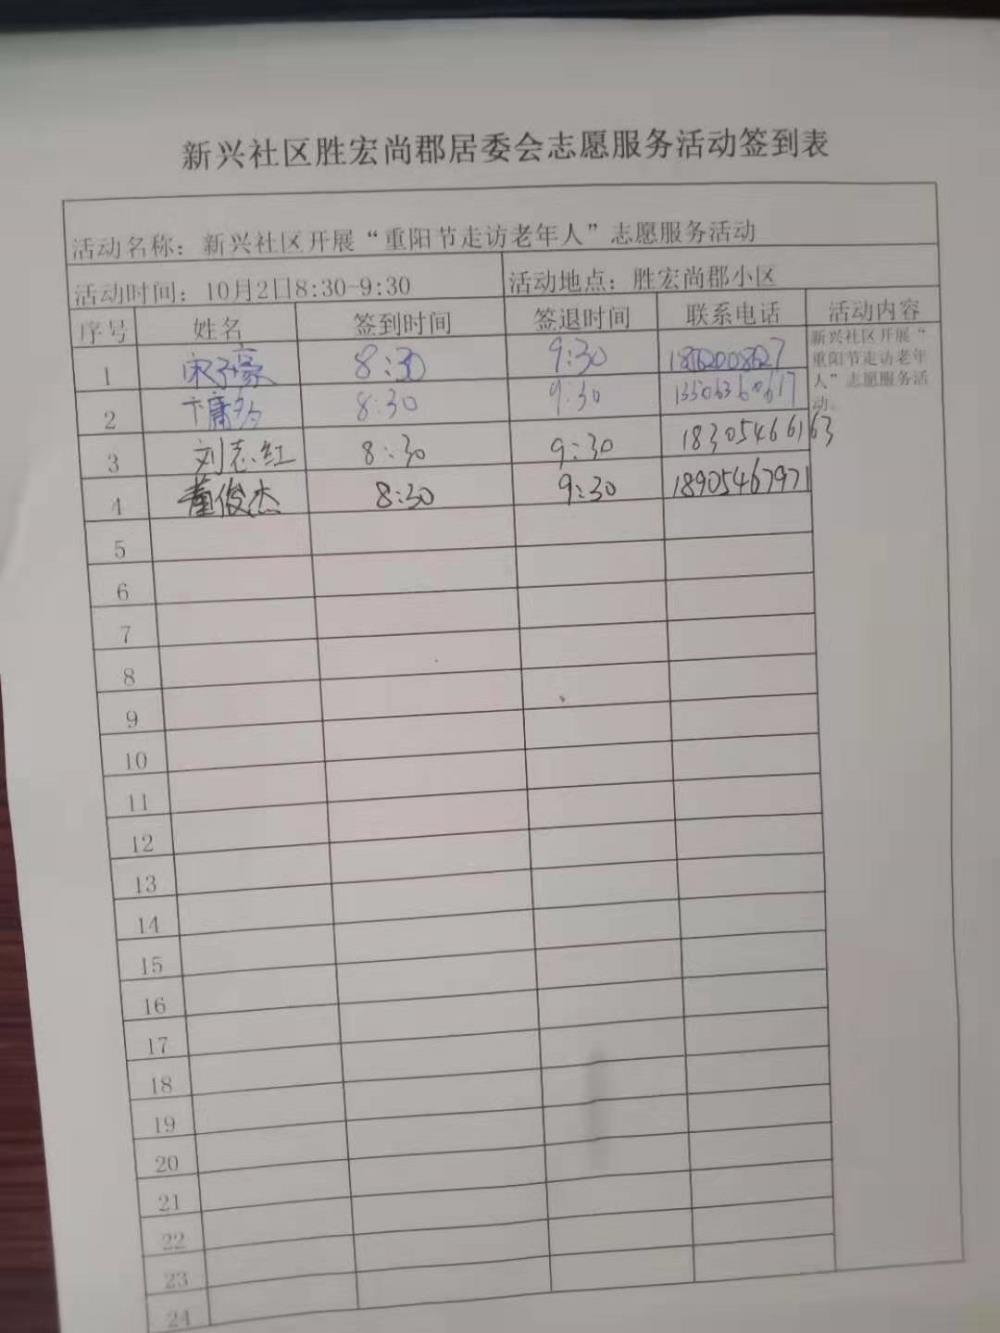 新兴社区胜宏尚郡居委会志愿服务活动签到表
活动名称：新兴社区开展“重阳节走访老年人”志愿服务活动
活动时间：10月2日8:30-9:30 活动地点：胜宏尚郡小区
序号 姓名 签到时间 签退时间 联系电话 活动内容
新兴社区开展“
重阳节走访老年
人”志愿服务活
动。
1 8:30 9:30
2 8:30 9:30 13506360617
3 刘志红 8:30 9:30 18305466163
4 董俊杰 8:30 9:30 18905467971
5
6
7
8
9
10
11
12
13
14
15
16
17
18
19
20
21
22
23
24